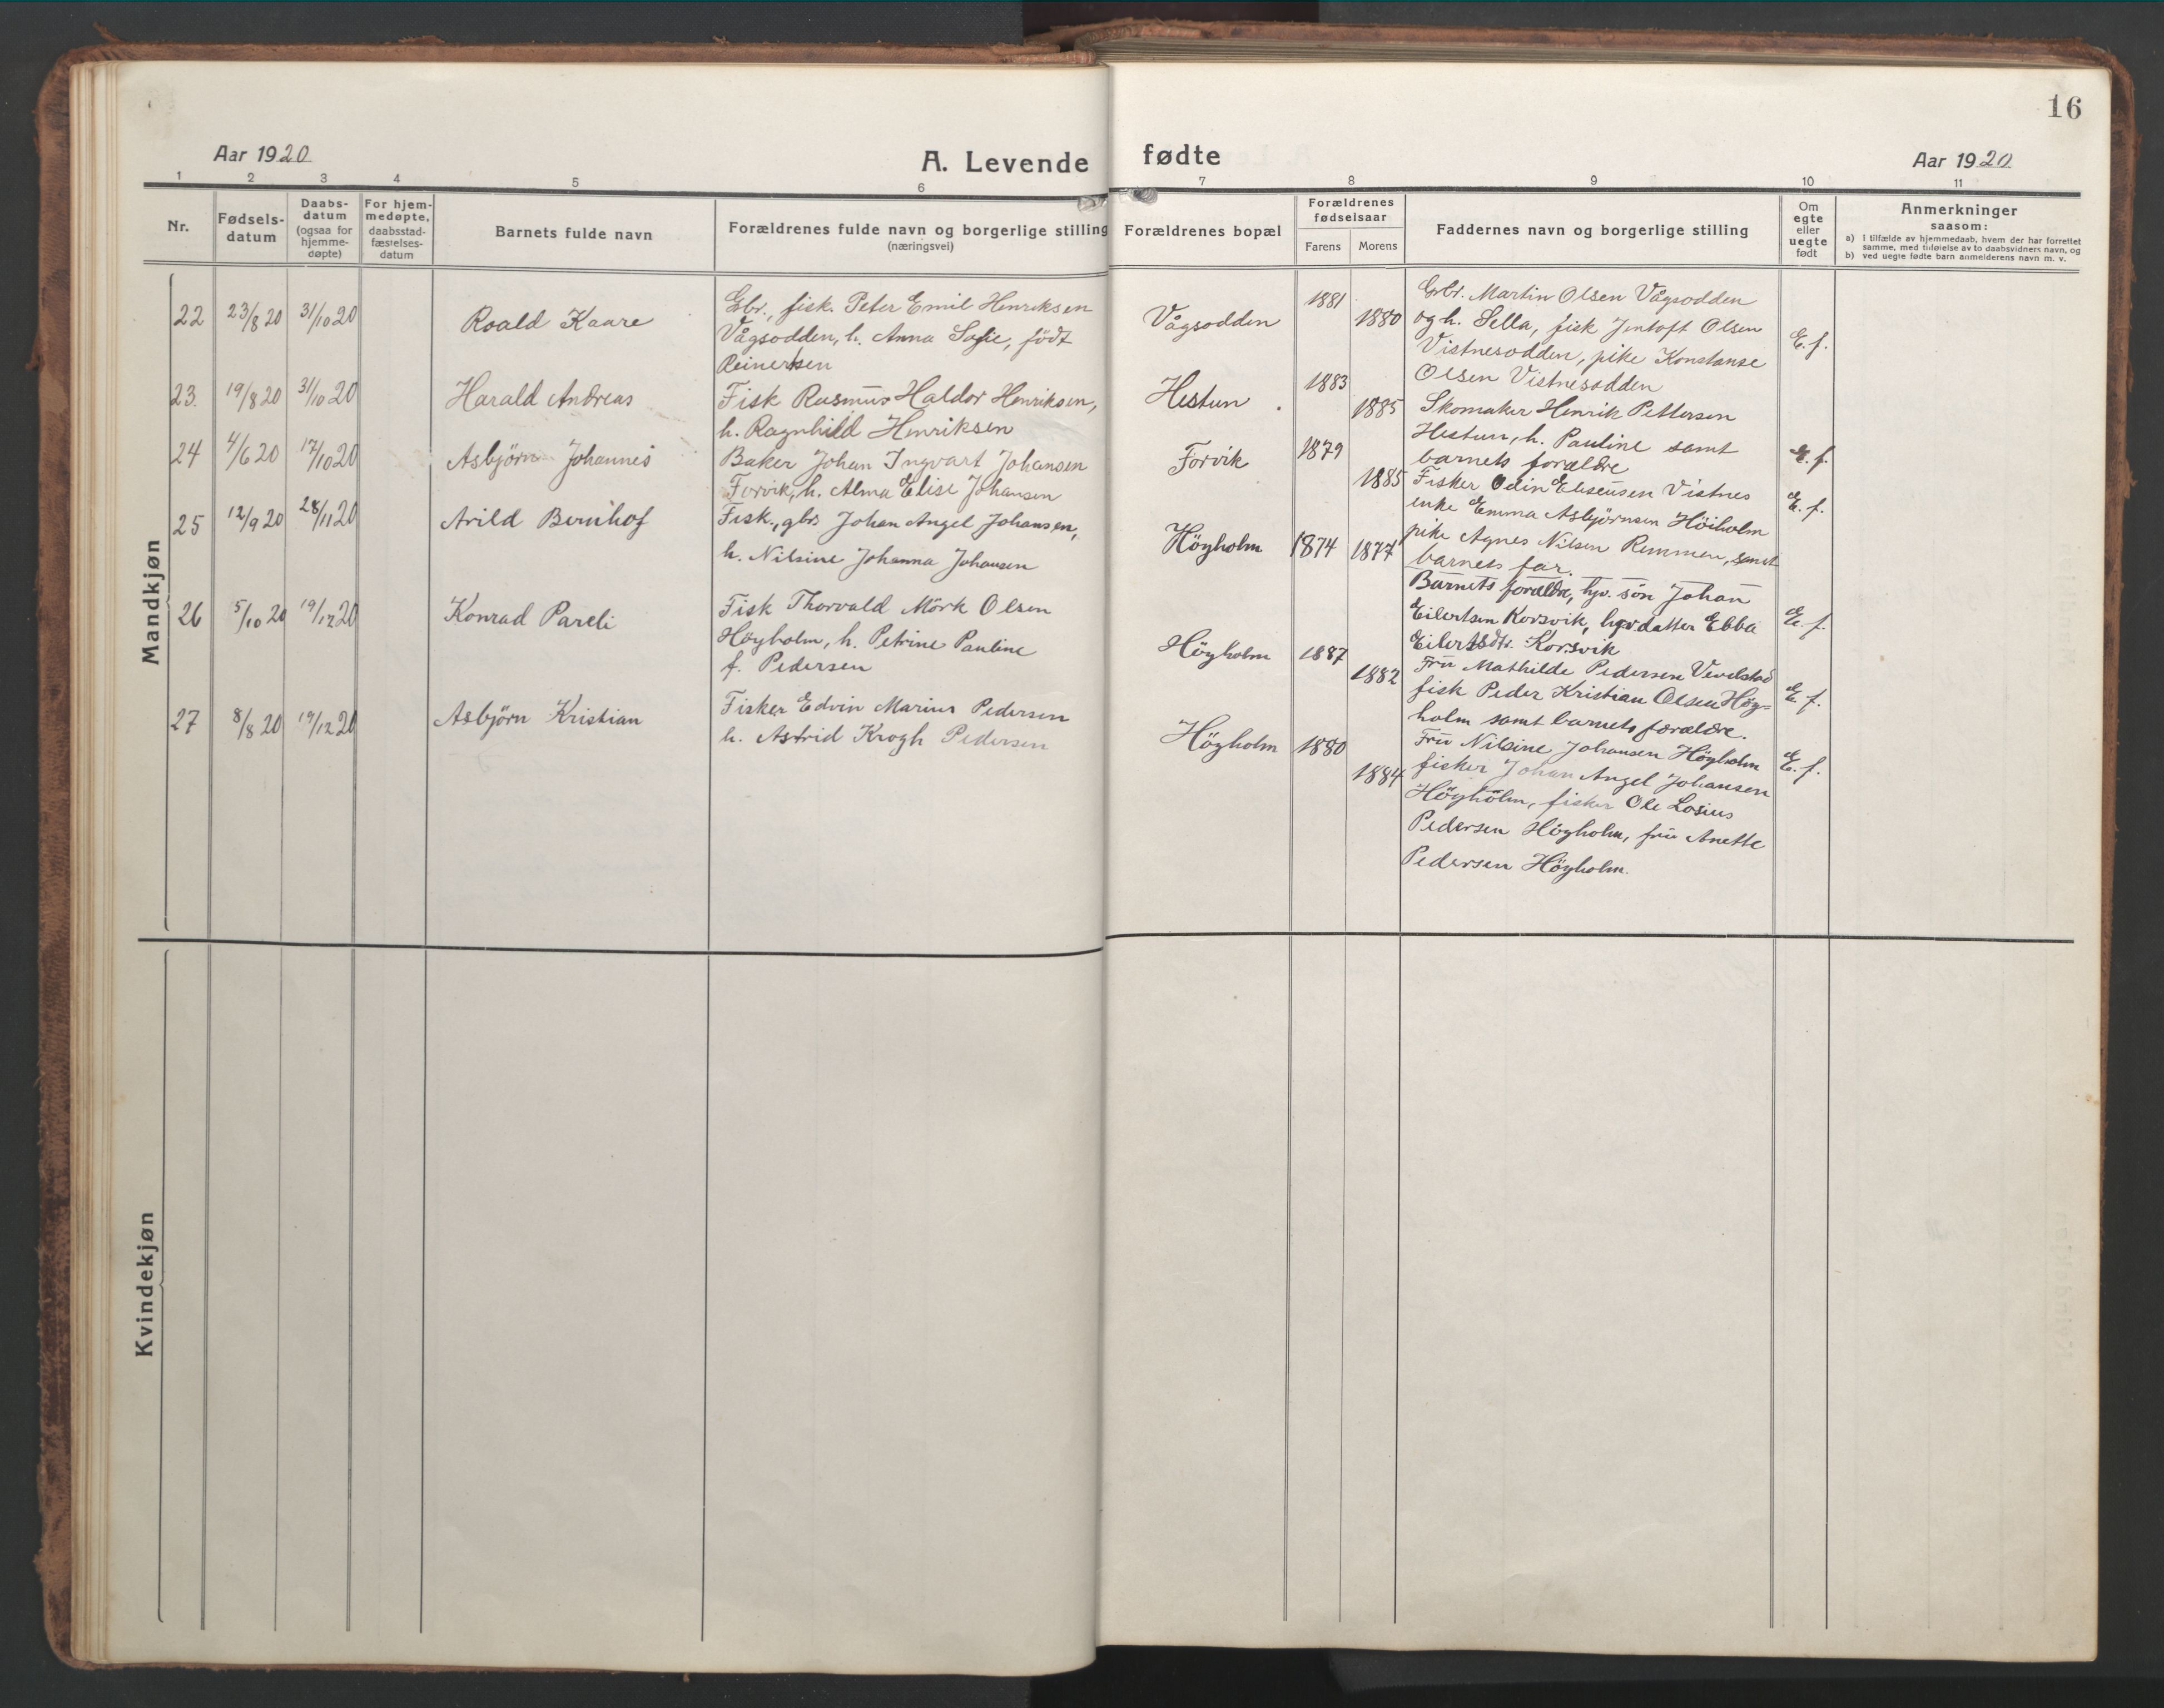 16
Aar 1920
A. Levende fødte
Aar 1920
1 2 3 4 5 6 7 8 9 10 11
Nr.
Fødsels-
datum
Daabs-
datum
(ogsaa for
hjemme-
døpte)
For hjem-
medøpte,
daabsstad-
fæstelses-
datum
Barnets fulde navn
Forældrenes fulde navn og borgerlige stilling
(næringsvei)
Forældrenes bopæl
Forældrenes
fødselsaar
Farens Morens
Faddernes navn og borgerlige stilling
Om
egte
eller
uegte
født
Anmerkninger
saasom:
a) I tilfælde av hjemmedaab, hvem der har forrettet
samme, med tilføielse av to daabsvidners navn, og
b) ved uegte fødte barn anmelderens navn m. v.
Mandkjøn
22 23/8 20 31/10 20 Roald Kaare
Gbr., fisk. Peter Emil Henriksen
Vågsodden, h. Anna Sofie, født
Reinertsen
Vågsodden 1881 1880
Gbr. Martin Olsen Vågsodden
og h. Sella, fisk Jentoft Olsen
Vistnesodden, pike Konstanse
Olsen Vistnesodden
E. f.
23. 19/8 20 31/10 20 Harald Andreas
Fisk Rasmus Haldor Henriksen,
h. Ragnhild Henriksen
Hestun 1883 1885
Skomaker Henrik Pettersen
Hestun, h. Pauline samt
barnets forældre
E. f.
24 4/6 20 17/10 20 Asbjörn Johannes
Baker Johan Ingvart Johansen
Forvik, h. Alma Elise Johansen
Forvik 1879 1885
Fisker Odin Eliseusen Vistnes
enke Emma Asbjörnsen Höiholm
pike Agnes Nilsen Remmen, samt
barnets far.
E. f.
25 12/9 20 28/11 20 Arild Bernhof
Fisk., gbr Johan Angel Johansen,
h. Nilsine Johanna Johansen
Höyholm 1874 1877
Barnets forældre, hjv. sön Johan
Eilertsen Korsvik, hjv. datter Ebba
Eilertsdtr. Korsvik
E. f.
26 5/10 20 19/12 20 Konrad Pareli
Fisk Thorvald Mörk Olsen
Höyholm, h. Petrine Pauline
f. Pedersen
Höyholm 1887 1882
Fru Mathilde Pedersen Vevelstad
fisk Peder Kristian Olsen Höy=
holm samt barnets forældre.
E. f.
27 8/8 20 19/12 20 Asbjörn Kristian
Fisker Edvin Marius Pedersen
h. Astrid Krogh Pedersen
Höyholm 1880 1884
Fru Nilsine Johansen Höyholm
fisker Johan Angel Johansen
Höyholm, fisker Ole Losius
Pedersen Höyholm, fru Anette
Pedersen Höyholm.
E. f.
Kvindekjøn